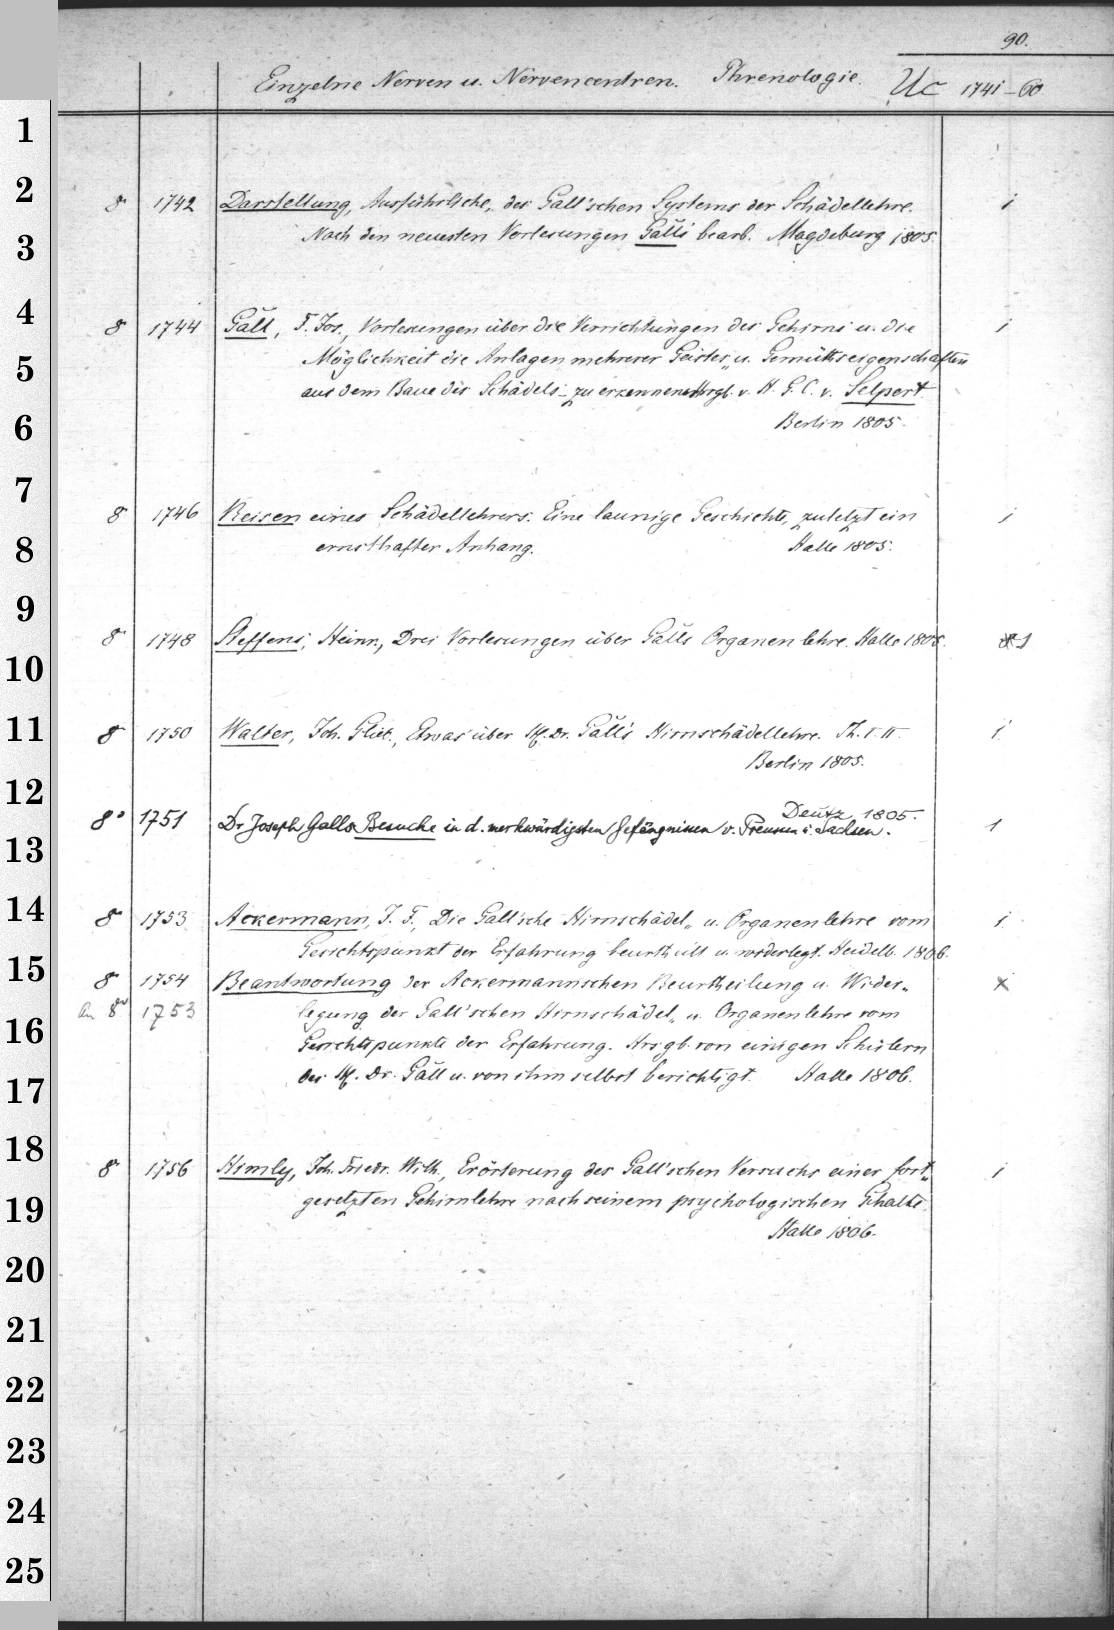 90.
Einzelne Nerven u. Nervencentren. Phrenologie. Uc 1741-60
1
2
8° 1742 Darstellung, Ausführliche, des Gall'schen Systems der Schädellehre. 1
3
Nach den neuesten Vorlesungen Gall's bearb. Magdeburg 1805.
4
8° 1744 Gall, F. Jos., Vorlesungen über die Verrichtungen des Gehirns u. die 1
5
Möglichkeit die Anlagen mehrerer Geistes„ u. Gemüthseigenschaften
aus dem Baue des Schädels zu erkennen. Hrsgb. v. H. G. C. v. Selpert
6
Berlin 1805.
7
8° 1746 Reisen eines Schädellehrers. Eine launige Geschichte, zuletzt ein 1
8
ernsthafter Anhang. Halle 1805.
9
8° 1748 Steffens, Heinr., Drei Vorlesungen über Gall's Organenlehre. Halle 1805. 1
10
11
8° 1750 Walter, Joh. Gliet., Etwas über H. Dr. Gall's Hirnschädellehre. Th. I. II. 1
Berlin 1805.
12
Deutz 1805.
8° 1751 Dr Joseph Galls Besuche in d. merkwürdigsten Gefängnissen v. Preussen u. Sachsen. 1
13
14
8° 1753 Ackermann, J. F., Die Gall'sche Hirnschädel„ u. Organenlehre vom 1
Gesichtspunkt der Erfahrung beurtheilt u. widerlegt. Heidelb. 1806.
15
8° 1754 Beantwortung der Ackermannschen Beurtheilung u. Wider„ x
An 8° 1753 legung der Gall'schen Hirnschädel„ u. Organenlehre vom
16
Gesichtspunkte der Erfahrung. Hrsgb. von einigen Schülern
17
des H. Dr. Gall u. von ihm selbst berichtigt. Halle 1806.
18
8° 1756 Himly, Joh. Friedr. Wilh., Erörterung des Gall'schen Versuchs einer fort„ 1
19
gesetzten Gehirnlehre nach seinem psychologischen Gehalte.
Halle 1806.
20
21
22
23
24
25